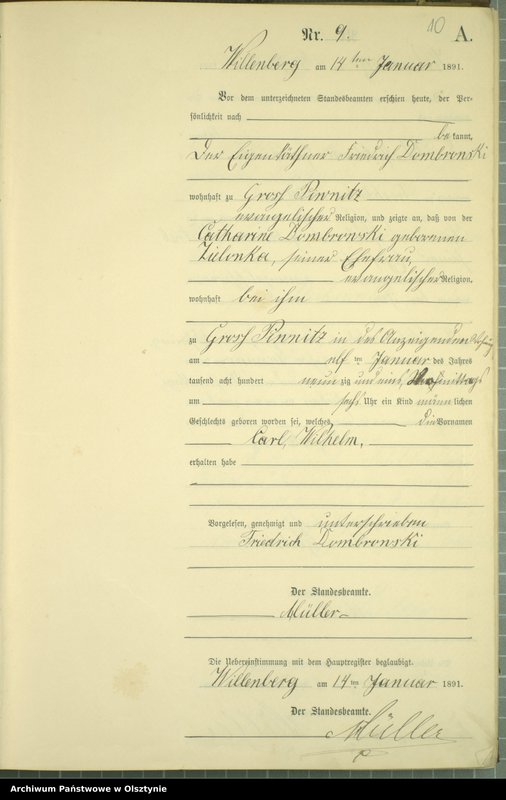 10
Nr. 9. A.
Willenberg am 14 ten Januar 1891.
Vor dem unterzeichneten Standesbeamten erschien heute, der Per-
sönlichkeit nach
be kannt,
Der Eigenkäthner Friedrich Dombronski
wohnhaft zu Gross Piwnitz
evangelischer Religion, und zeigte an, daß von der
Catharine Dombrowski geborenen
Zielonka, seiner Ehefrau,
evangelischer Religion,
wohnhaft bei ihm
zu Gross Piwnitz in des Anzeigenden Wohnung
am elf ten Januar des Jahres
tausend acht hundert neun zig und eins, mittags
um sechs Uhr ein Kind männ lichen
Geschlechts geboren worden sei, welches die Vornamen
Carl, Wilhelm,
erhalten habe
Vorgelesen, genehmigt und unterschrieben
Friedrich Dombronski
Der Standesbeamte.
Müller
Die Uebereinstimmung mit dem Hauptregister beglaubigt.
Willenberg am 14 ten Januar 1891.
Der Standesbeamte.
Müller
Archiwum Państwowe w Olsztynie